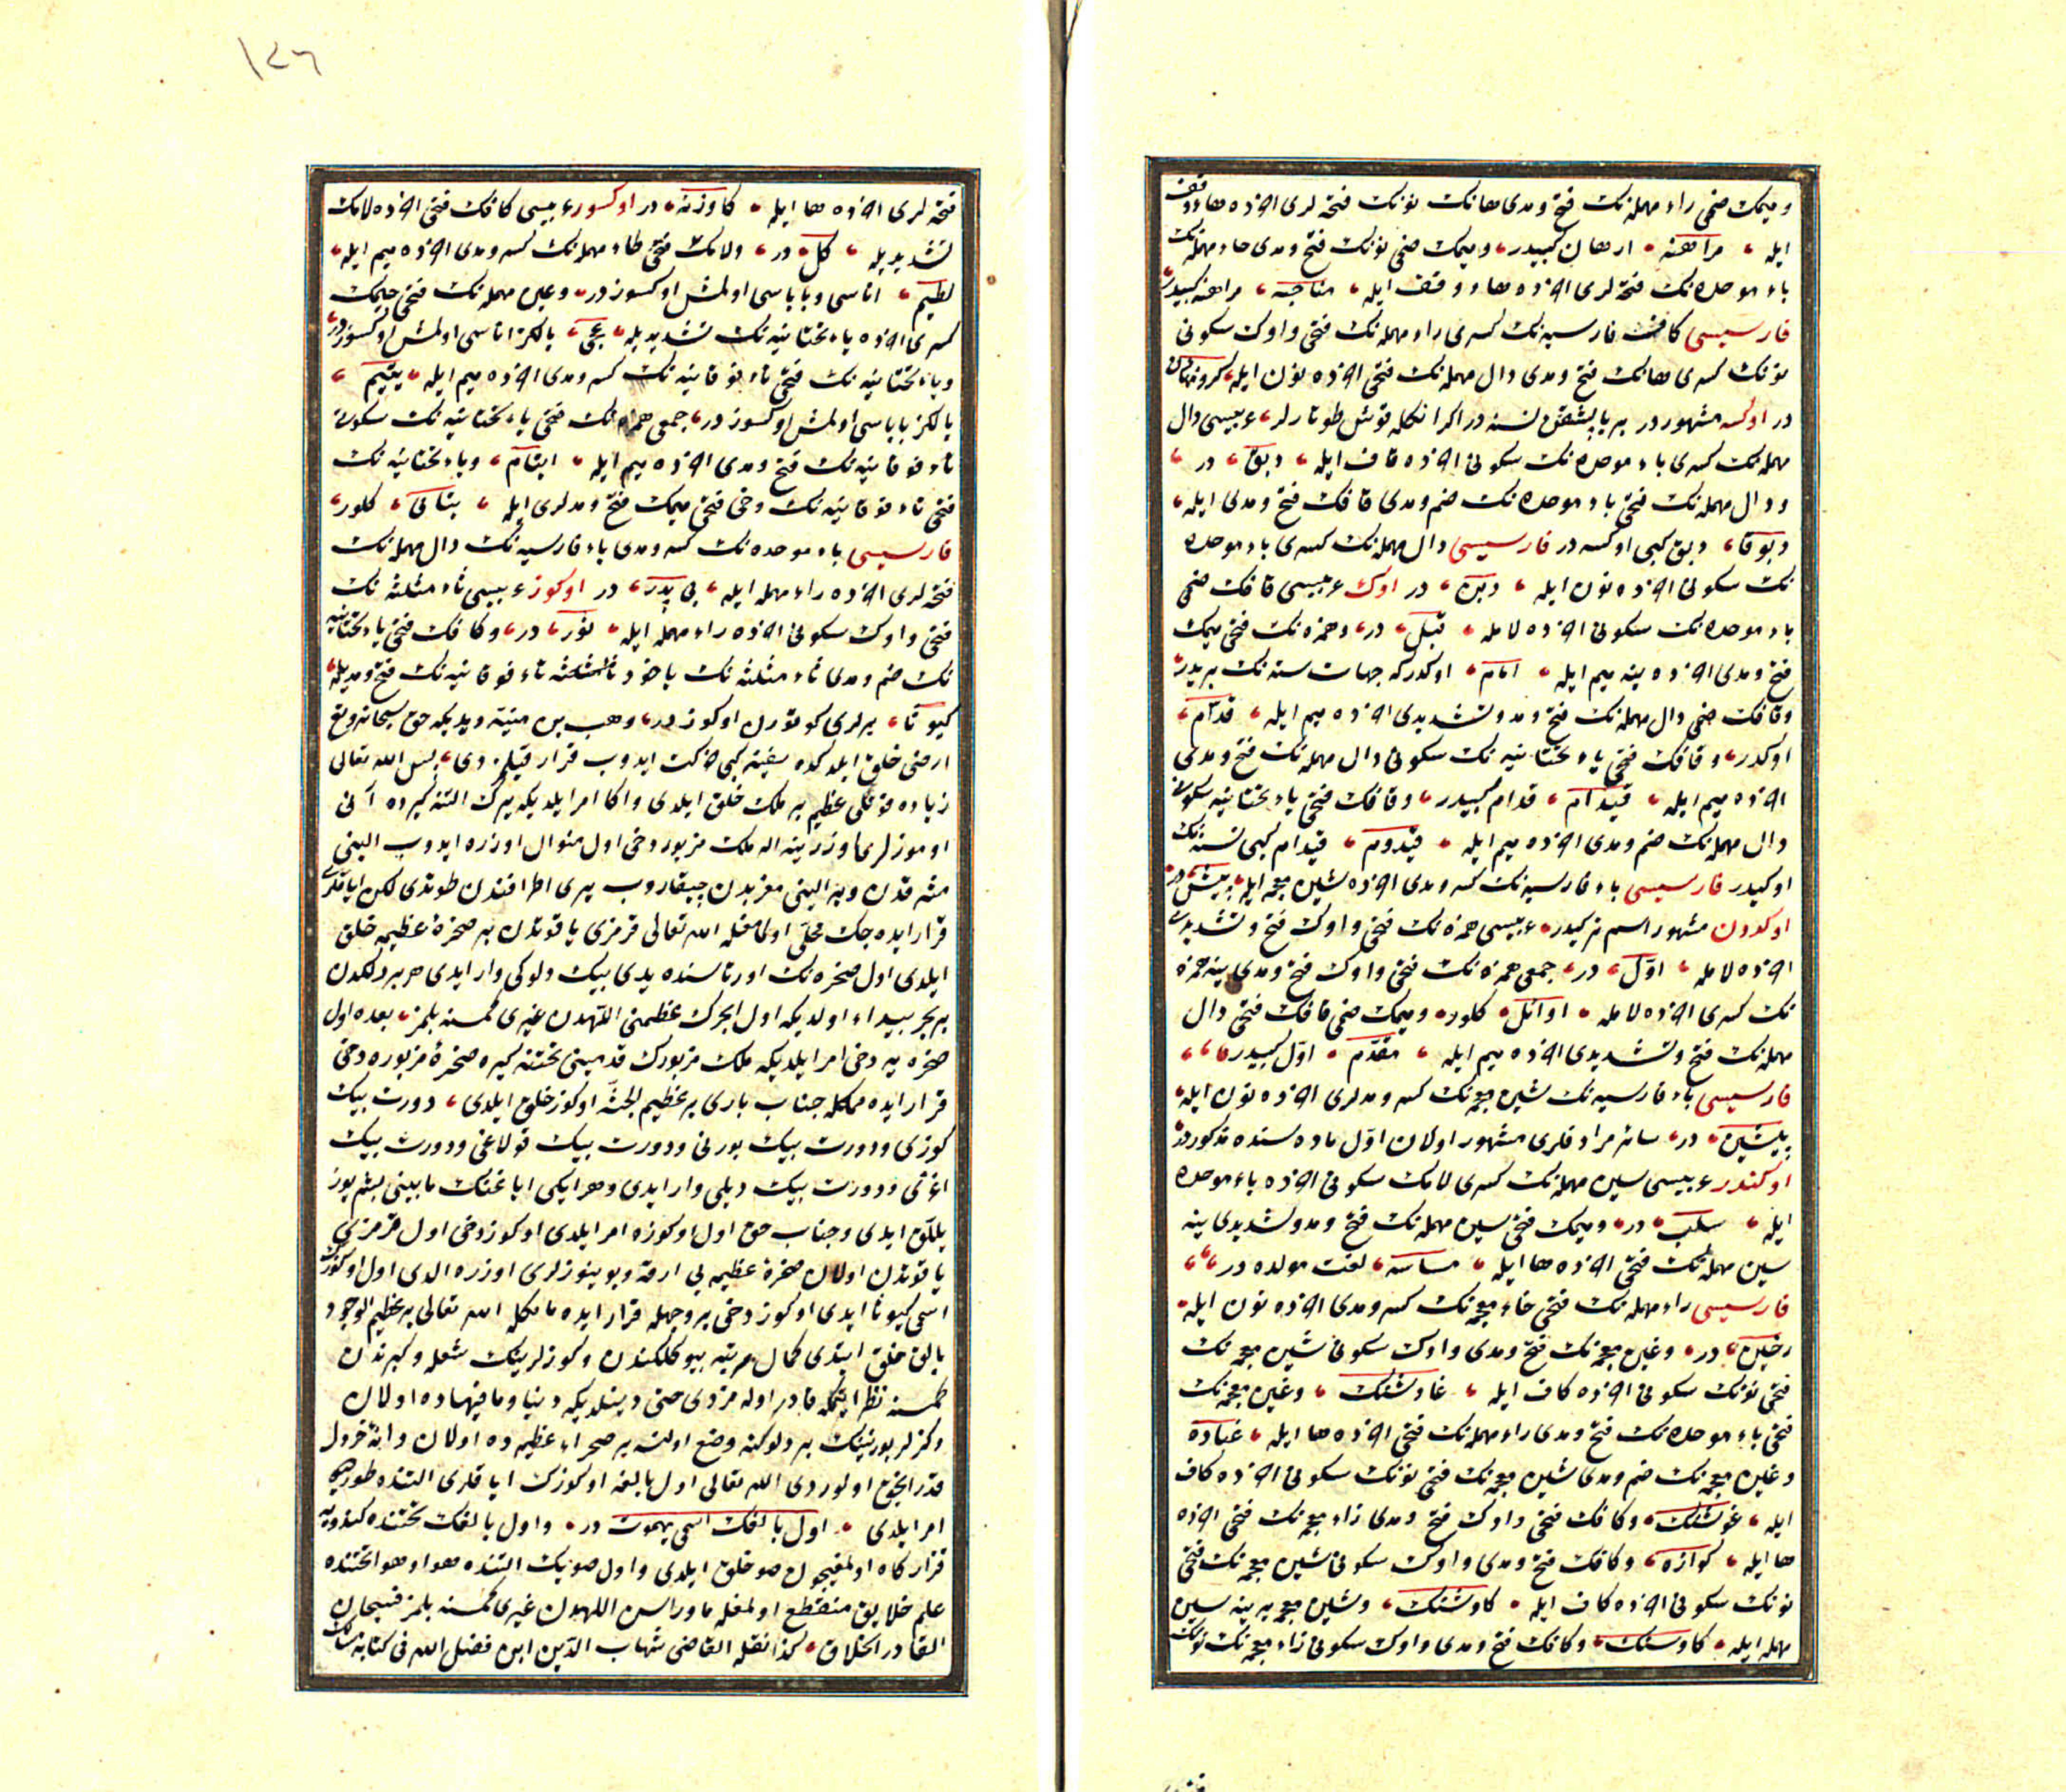 و میمك ضمی راء مهمله نك فتح و مدی هانك نونك فتحه لری آخرده هاء وقف
ایله مراهنه ارهان كبیدر و میمك ضمی نونك فتح و مدی حاء مهمله نك
باء موحده نك فتحه لری آخرده هاء وقف ایله مناحبه مراهنه كبیدر
فارسیسی كاف فارسیه نك كسری راء مهمله نك فتحی واوك سكونی
نونك كسری هانك فتح و مدی دال مهمله نك فتحی آخرده نون ایله
در اوكسه مشهور در بر یاپشقن نسنه در اكرا نكله قوش طوتارلر عربیسی دال
مهمله نك كسری باء موحده نك سكونی آخرده قاف ایله دبق در
و دال مهمله نك فتحی باء موحده نك ضم و مدی قافك فتح و مدی ایله
دبوقا دبق كبی اوكسه در فارسیسی دال مهمله نك كسری باء موحده
نك سكونی آخرده نون ایله دبن در اوك عربیسی قافك ضمی
باء موحده نك سكونی آخرده لامله قبل در و همزه نك فتحی میمك
فتح و مدی آخرده ینه میم ایله امام اوكدركه جهات سته نك بریدر
و قافك ضمی دال مهمله نك فتح و مد و تشدیدی آخرده میم ایله قدّام
اوكدر و قافك فتحی یاء تحتانیه نك سكونی دال مهمله نك فتح و مدی
آخرده میم ایله قیدام قدام كبیدر و قافك فتحی یاء تحتانیه نك سكونی
دال مهمله نك ضم و مدی آخرده میم ایله قیدوم قیدام كبی نسنه نك
اوكیدر فارسیسی باء فارسیه نك كسر و مدی آخرده شین معجمه ایله پیش در
اوكدون مشهور اسم تركیدر عربیسی همزه نك فتحی واوك فتح و تشدیدی
آخرده لامله اوّل در جمعی همزه نك فتحی واوك فتح و مدی ینه همزه
نك كسری آخرده لامله اوائل كلور و میمك ضمی قافك فتحی دال
مهمله نك فتح و تشدیدی آخرده میم ایله مقدّم اوّل كبیدر
فارسیسی باء فارسیه نك شین معجمه نك كسر و مدلری آخرده نون ایله
پیشین در سائر مرادفلری مشهور اولان اوّل ماده سنده مذكوردر
اوكندر عربیسی سین مهمله نك كسری لامك سكونی آخرده باء موحده
ایله سلب در و میمك فتحی سین مهمله نك فتح و مد و تشدیدی ینه
سین مهمله نك فتحی آخرده ها ایله مساسه لغت مولده در
فارسیسی راء مهمله نك فتحی خاء معجمه نك كسر و مدی آخرده نون ایله
رخین در و غین معجمه نك فتح و مدی واوك سكونی شین معجمه نك
فتحی نونك سكونی آخرده كاف ایله غاوشنك و غین معجمه نك
فتحی باء موحده نك فتح و مدی راء مهمله نك فتحی آخرده ها ایله
و غین معجمه نك ضم و مدی شین معجمه نك فتحی نونك سكونی آخرده كاف
ایله غوشنك و كافك فتحی واوك فتح و مدی زاء معجمه نك فتحی آخرده
ها ایله كوازه و كافك فتح و مدی واوك سكونی شین معجمه نك فتحی
نونك سكونی آخرده كاف ایله كاوشنك و شین معجمه یه ینه سین
مهمله ایله كاوسنك و كافك فتح و مدی واوك سكونی زاء معجمه نك نونك
١٢٦
فتحه لری آخرده ها ایله كاوزنه در اوكسوز عربیسی كافك فتحی آخرده لامك
تشدیدیله كلّ در و لامك فتحی طاء مهمله نك كسر و مدی آخرده میم ایله
لطیم اناسی و باباسی اولمش اوكسوز در و عین مهمله نك فتحی جیمك
كسری آخرده یاء تحتانیه نك تشدیدیله عجیّ یالكز اناسی اولمش اوكسوزدر
و یاء تحتانیه نك فتحی تاء فوقانیه نك كسر و مدی آخرده میم ایله یتیم
یالكز باباسی اولمش اوكسوز در جمعی همزه نك فتحی یاء تحتانیه نك سكونی
تاء فوقانیه نك فتح و مدی آخرده میم ایله ایتام و یاء تحتانیه نك
فتحی تاء فوقانیه نك دخی فتحی میمك فتح و مدلری ایله یتامی كلور
فارسیسی باء موحده نك كسر و مدی باء فارسیه نك دال مهمله نك
فتحه لری آخرده راء مهمله ایله بی پدر در اوكوز عربیسی ثاء مثلثه نك
فتحی واوك سكونی آخرده راء مهمله ایله ثور در و كافك فتحی یاء تحتانیه
نك ضم و مدی ثاء مثلثه نك یاخود تاء فوقانیه نك فتح و مدیله
كیوثا یرلری كوتورن اوكوز در وهب بن منبه دیدیكه حق سبحانه و تع
ارضی خلق ایلدكده سفینه كبی حركت ایدوب قرار قیلمدی پس الله تعالی
زیاده قوتلی عظیم بر ملك خلق ایلدی و اكا امر ایلدیكه یرك التنه كیره آنی
اوموزلری اوزرینه اله ملك مزبور دخی اول منوال اوزره ایدوب الینی
مشرقدن و بر الینی مغربدن چیقاروب یری اطرافندن طوتدی لكن ایاقلری
قرار ایده جك محلّی اولمامغله الله تعالی قرمزی یاقوتدن بر صخرۀ عظیمه خلق
ایلدی اول صخره نك اورتاسنده یدی بیك دلوكی وار ایدی هر بر دلكدن
بر بحر پیدا اولدیكه اول ابحرك عظمنی اللّهدن غیری كمسنه بلمز بعده اول
صخره یه دخی امر ایلدیكه ملك مزبورك قدمینی تحتنه كیره صخرۀ مزبوره دخی
قرار ایده مامكله جناب باری بر عظیم الجثّه اوكوز خلق ایلدی دورت بیك
كوزی و دورت بیك بورنی و دورت بیك قولاغی و دورت بیك
اغزی و دورت بیك دیلی وار ایدی و هر ایكی ایاغنك مابینی بشیوز
ییللق ایدی و جناب حق اول اوكوزه امر ایلدی اوكوز دخی اول قرمزی
یاقوتدن اولان صخرۀ عظیمه یی ارقه و بوینوزلری اوزره الدی اول اوكوزك
اسمی كیوثا ایدی اوكوز دخی بر وجهله قرار ایده مامكله الله تعالی بر عظیم الوجود
بالق خلق ایتدی كمال مرتبه بیوكلكندن و كوزلرینك شعله و كبرندن
كمسنه نظر ایتمكه قادر اوله مزدی حتی دینلدیكه دنیا و مافیهاده اولان
دكزلر بورنینك بر دلوكنه وضع اولنسه بر صحراء عظیمه ده اولان دانۀ خردل
قدر انجق اولوردی الله تعالی اول بالغه اوكوزك ایاقلری التنده طورمغه
امر ایلدی اول بالغك اسمی بهموت در و اول بالغك تحتنده كندویه
قرارگاه اولمغیچون صو خلق ایلدی و اول صویك التنده هوا و هوا تحتنده
علم خلایق منقطع اولمغله ماوراسن اللهدن غیری كمسنه بلمز فسبحان
القادر الخلاق كذا نقله القاضی شهاب الدّین ابن فضل الله فی كتابه